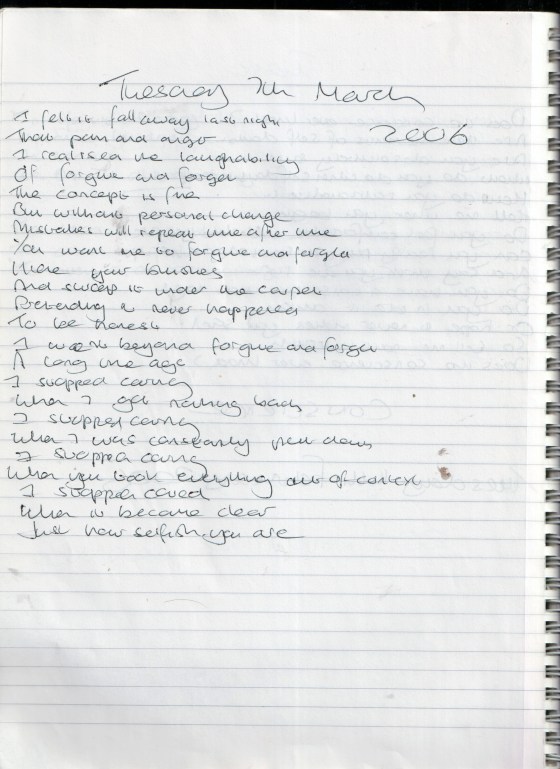 Tuesday 7th March
2006
I felt it fall away last night
That pain and anger
I realised the laughability
Of forgive and forget
The concept is fine
But without personal change
Mistakes will repeat time after time
You want me to forgive and forget
Hide your bruises
And sweep it under the carpet
Pretending it never happened
To be honest
I went beyond forgive and forget
A long time ago
I stopped caring
When I got nothing back
I stopped caring
When I was constantly put down
I stopped caring
When you took everything out of context
I stopped cared
When it became clear
Just how selfish you are